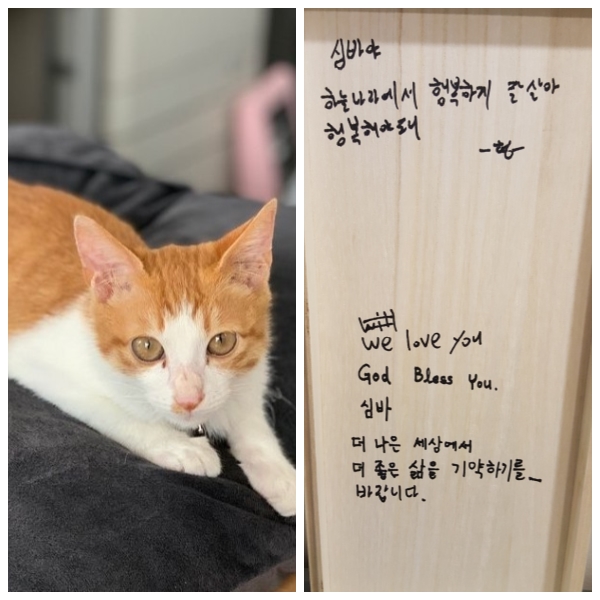 심바야
하늘나라에서 행복하게 잘 살아
행복해야 돼
we love you
God Bless You.
심바
더 나은 세상에서
더 좋은 삶을 기약하기를
바랍니다.